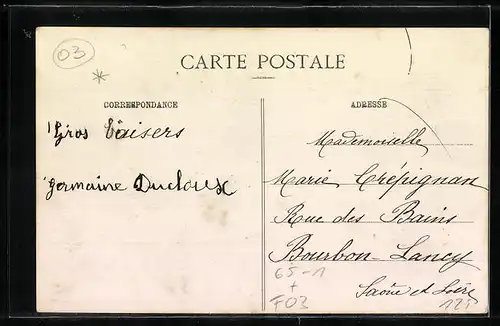 03
*
CARTE POSTALE
CORRESPONDANCE
ADRESSE
Gros Baisers
Germaine Ducloux
Mademoiselle
Marie Crépignan
Rue des Bains
Bourbon-Lancy
Saône et Loire
65-1
+
F03